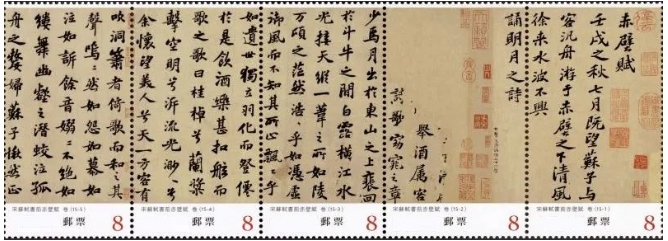 赤壁賦
壬戌之秋七月既望蘇子與
客汎舟游于赤壁之下清風
徐來水波不興
誦明月之詩
宋蘇軾書前赤壁賦 卷 (15-1)
郵票 8
舉酒屬客
歌窈窕之章
宋蘇軾書前赤壁賦 卷 (15-2)
郵票 8
少焉月出於東山之上裵回
於斗牛之間白露橫江水
光接天縱一葦之所如陵
萬頃之茫然浩〻乎如馮虛
御風而不知其所止飄〻乎
宋蘇軾書前赤壁賦 卷 (15-3)
郵票 8
如遺世獨立羽化而登僊
於是飲酒樂甚扣舷而
歌之歌曰桂棹兮蘭槳
擊空明兮泝流光渺〻兮
余懷望美人兮天一方客有
宋蘇軾書前赤壁賦 卷 (15-4)
郵票 8
吹洞簫者倚歌而和之其
聲嗚〻然如怨如慕如
泣如訴餘音嫋〻不絕如
縷舞幽壑之潛蛟泣孤
舟之嫠婦蘇子愀然正
宋蘇軾書前赤壁賦 卷 (15-5)
郵票 8